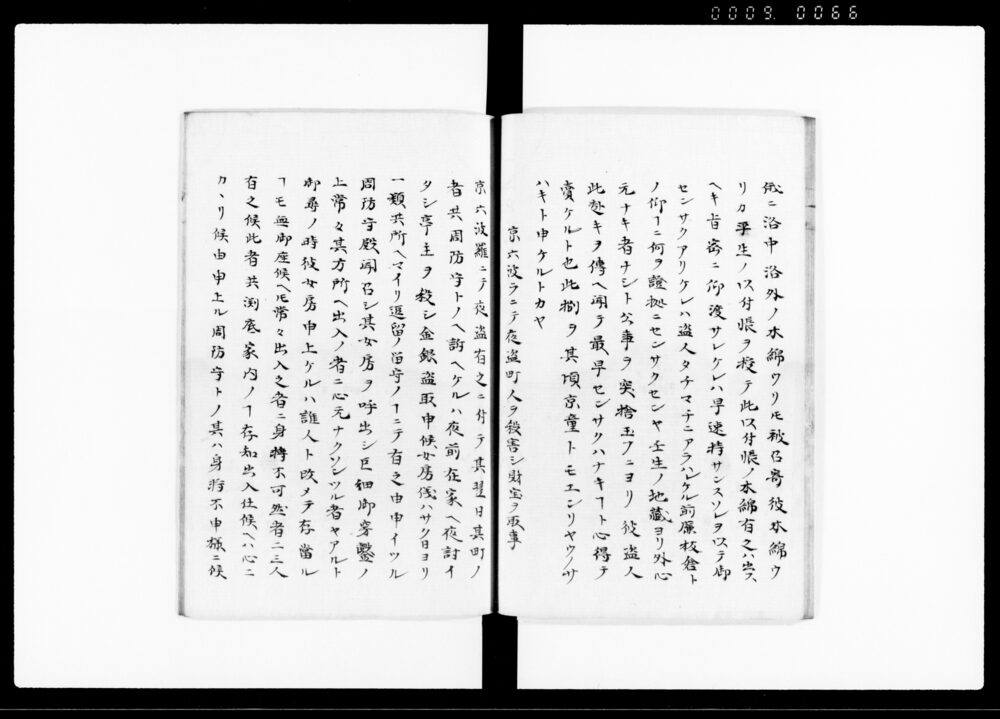 0009. 0066
俄ニ洛中洛外ノ木綿ウリモ被召寄彼木綿ウ
リカ平生ノ以付帳ヲ投テ此以付帳ノ木綿有之ハ出ス
ヘキ旨密ニ仰渡サレケレハ早速持サンスソレヲ以テ御
センサクアリケレハ盗人タチマチニアラハレケル前廉板倉ト
ノ仰ーニ何ヲ證拠ニセンサクセンヤ壬生ノ地蔵ヨリ外心
元ナキ者ナシト公事ヲ突捨玉フニヨリ彼盗人
此趣キヲ傳ヘ聞テ最早センサクハナキート心得テ
賣ケルト也此捌ヲ其頃京童トモエンリヤウノサ
ハキト申ケルトカヤ
京六波ラニテ夜盗町人ヲ殺害シ財宝ヲ取事
京六波羅ニテ夜盗有之ニ付テ其翌日其町ノ
者共周防守トノヘ訴ヘケルハ夜前在家ヘ夜討イ
タシ亭主ヲ殺シ金銀盗取申候女房儀ハサク日ヨリ
一類共所ヘマイリ逗留ノ留守ノーニテ有之由申イツル
周防守殿聞召シ其女房ヲ呼出シ巨細御穿鑿ノ
上常々其方所ヘ出入ノ者ニ心元ナクソンツル者ヤアルト
御尋ノ時彼女房申上ケルハ誰人ト改メテ存當ル
ーモ無御座候ヘ𪜈常々出入之者ニ身持不可然者二三人
有之候此者共渕底家内ノー存知出入仕候ヘハ心ニ
カヽリ候由申上ル周防守トノ其ハ身持不申様ニ候